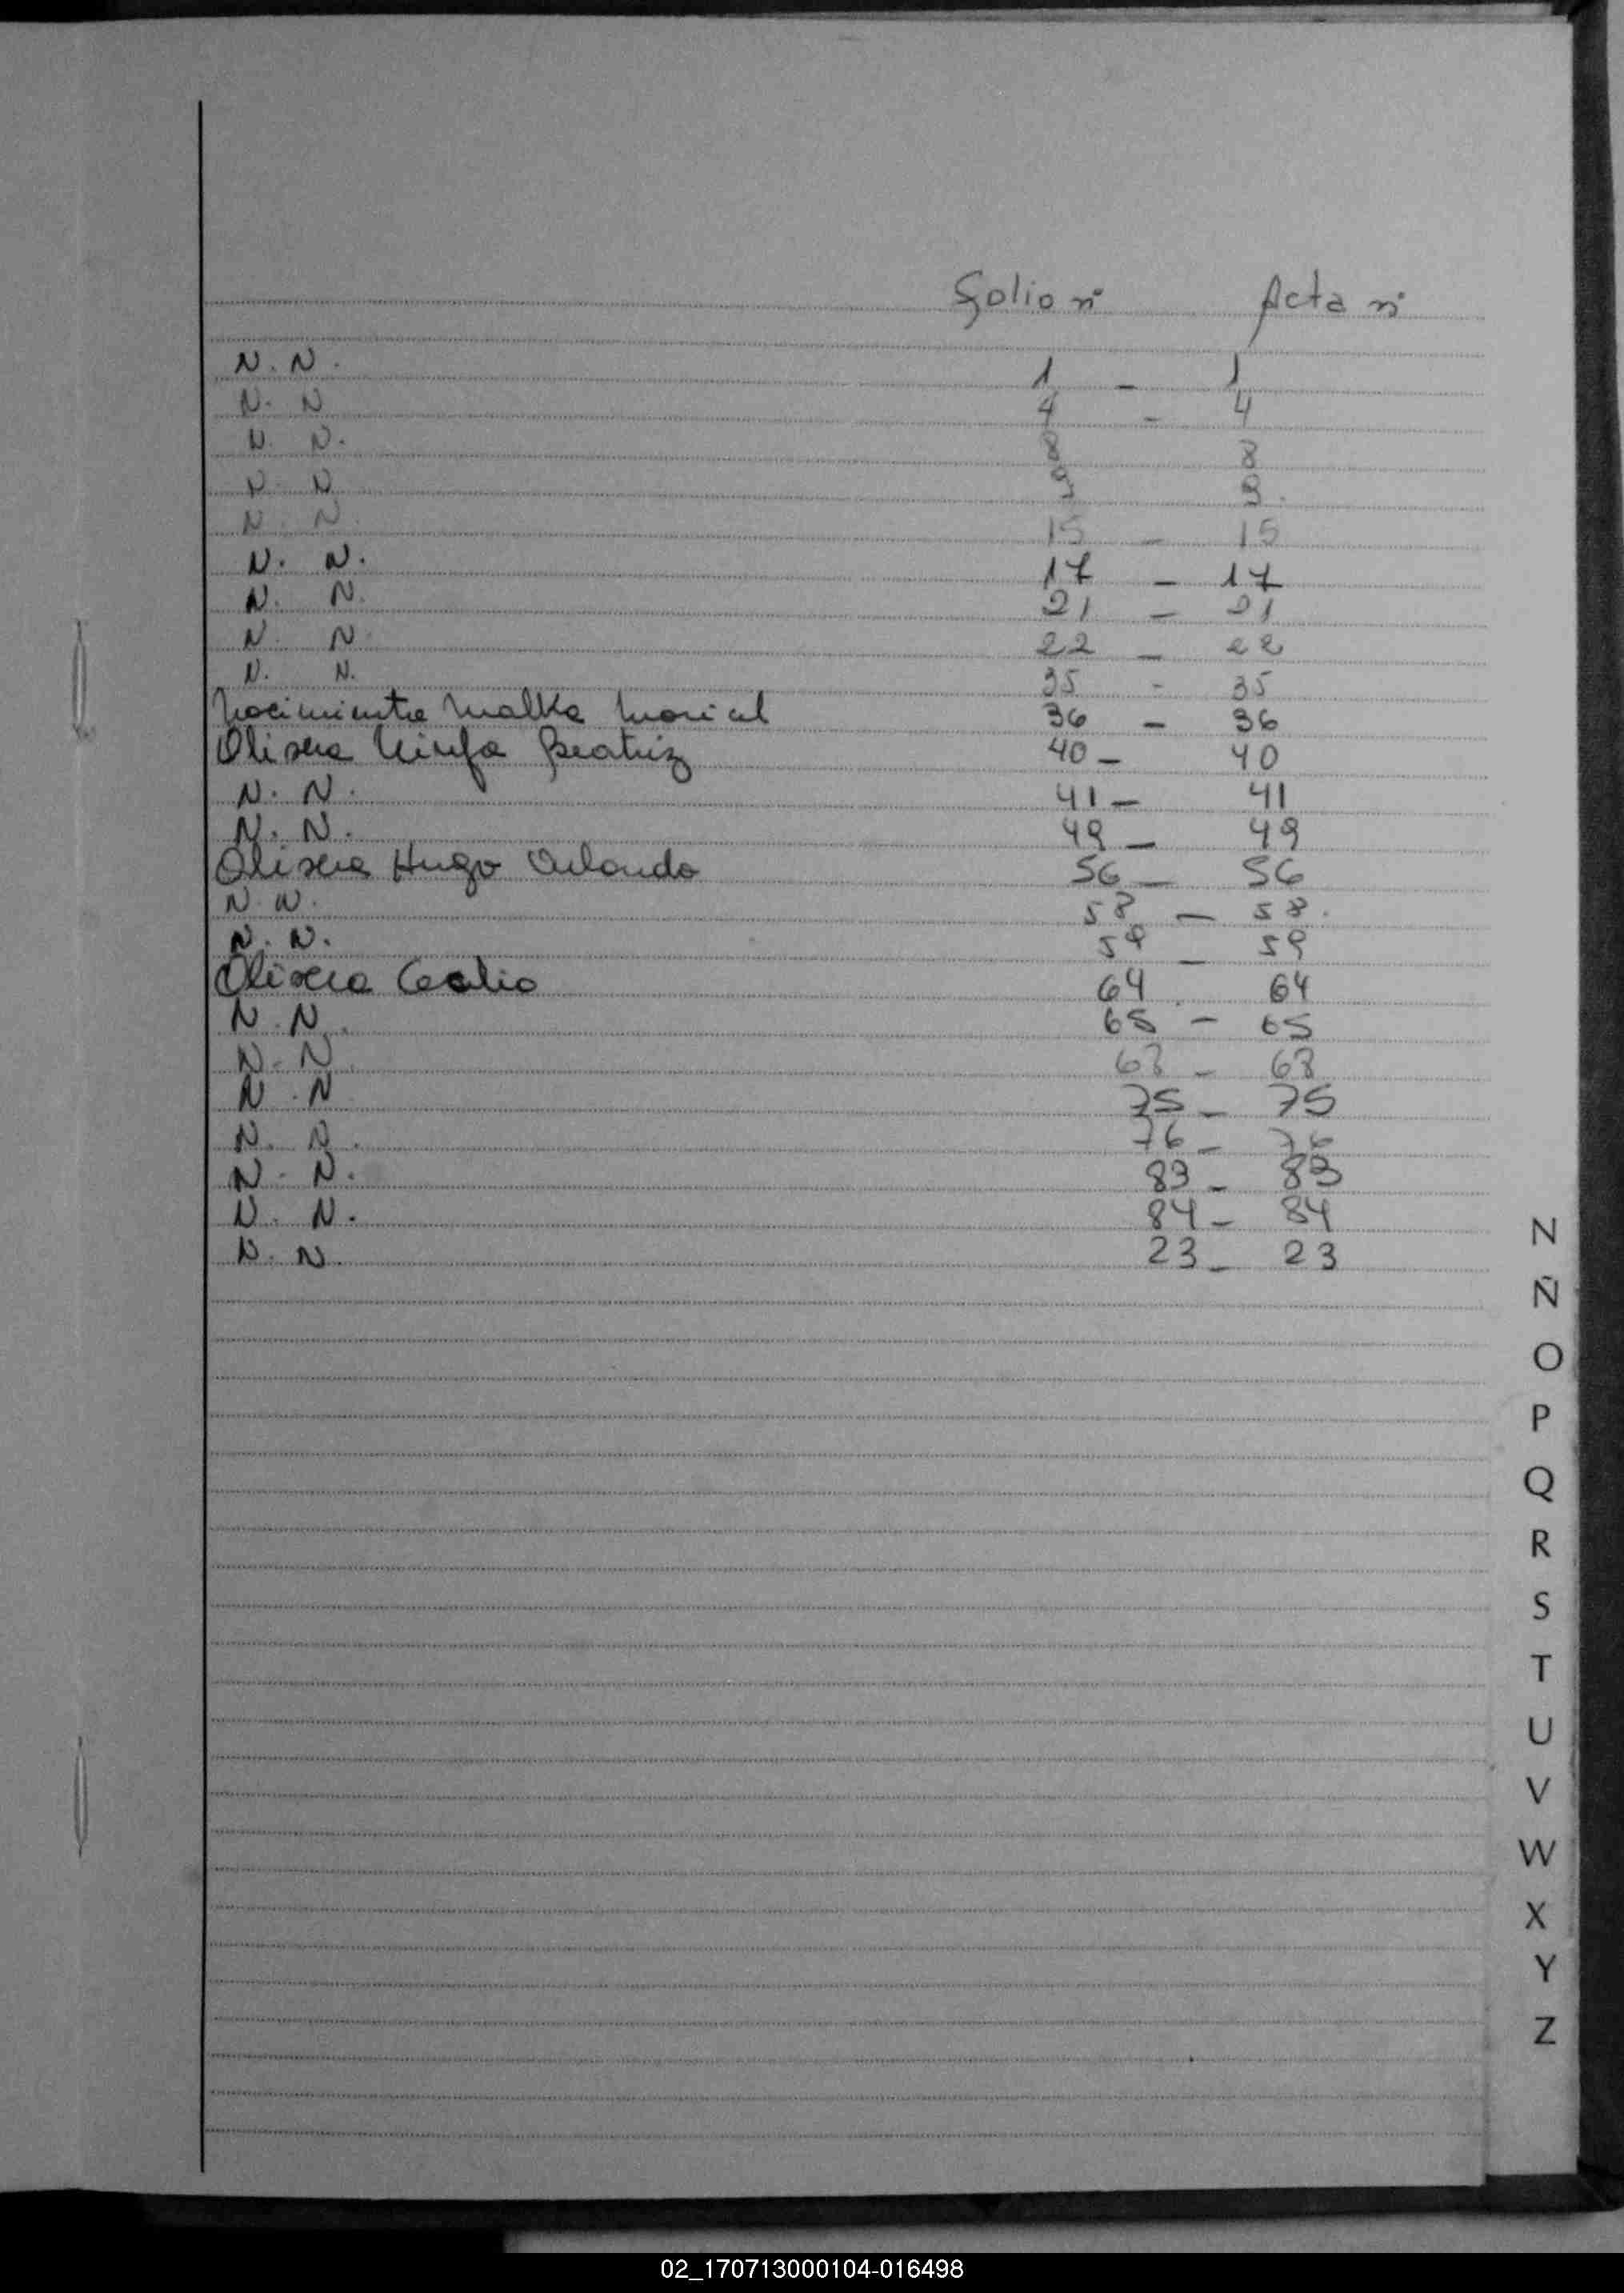 Folio nº Acta nº
N. N. 1 - 1
N. N 4 - 4
N. N. 8 8
N. N 9 9.
N. N. 15 - 15
N. N. 17 - 17
N. N. 21 - 21
N. N. 22 - 22
N. N. 35 - 35
36 - 36
Olivera Ninfa Beatriz 40 - 40
N. N. 41 - 41
N. N. 49 - 49
Olivera Hugo Orlando 56 - 56
N. N. 58 - 58.
N. N. 59 - 59
Olivera 64 . 64
N. N. 65 - 65
N. N. 68 - 68
N. N 75 - 75
N. N. 76 - 76
N. N. 83 - 83
N. N. 84 - 84
N. N. 23 - 23
N
Ñ
O
P
Q
R
S
T
U
V
W
X
Y
Z
02_170713000104-016498